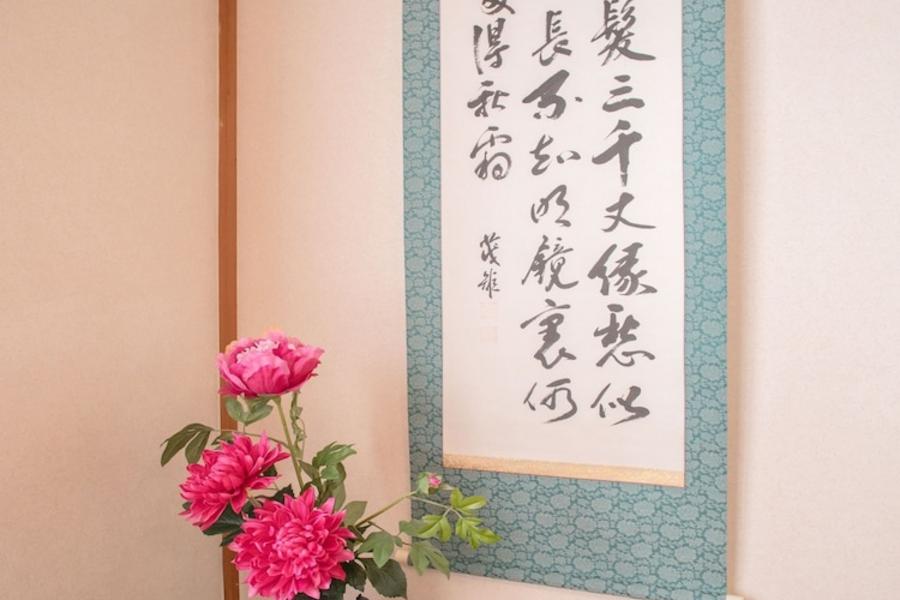 髮三千丈緣愁似
長不知明鏡裏何
得秋霜